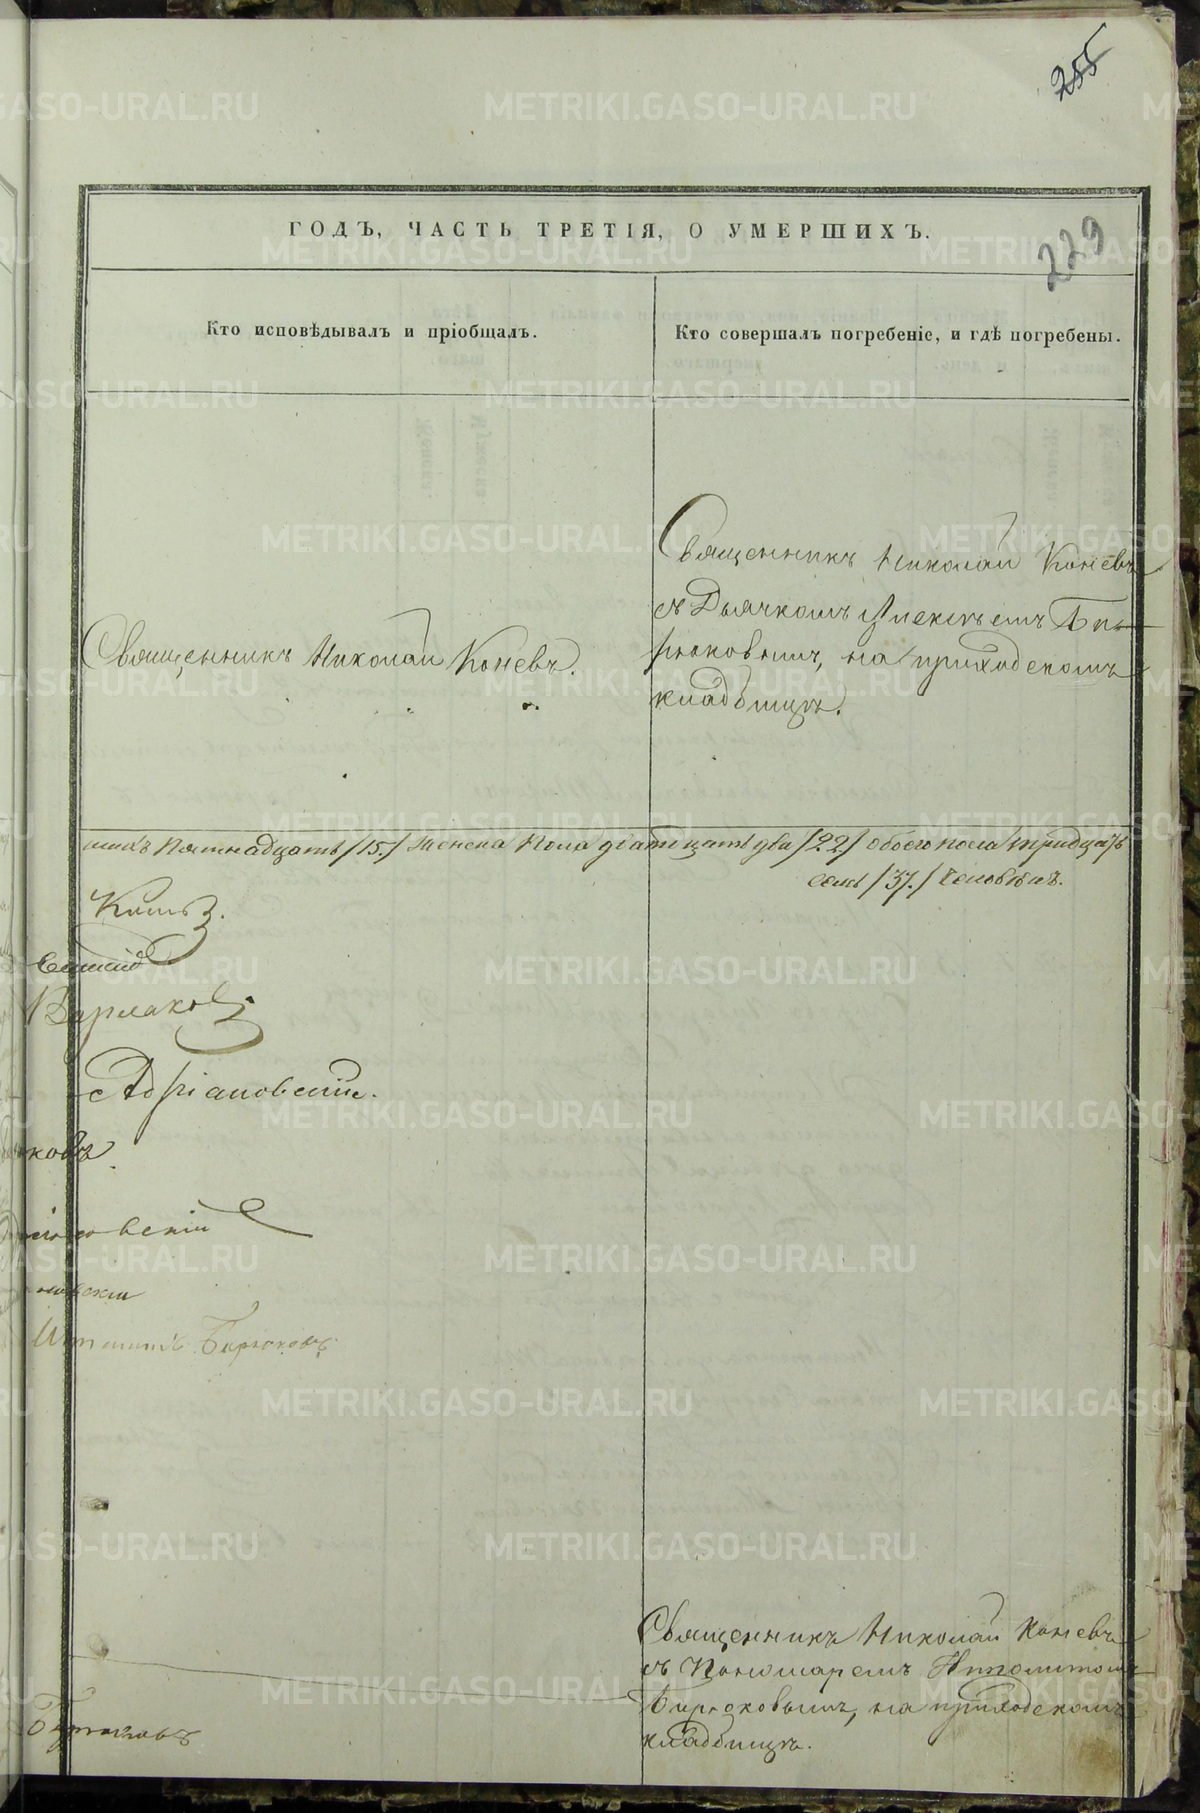 255
229
ГОДЪ, ЧАСТЬ ТРЕТІЯ, О УМЕРШИХЪ.
Кто исповѣдывалъ и пріобщалъ.
Кто совершалъ погребеніе, и гдѣ погребены.
Священникъ Николай Коневъ.
Священникъ Николай Коневъ
съ Дьячкомъ Алексѣемъ Би-
рюковымъ, на приходскомъ
кладбищѣ.
Пятнадцать /15./ женска пола двадцать два /22/ обоего пола тридцать
семь /37./ человѣкъ.
Варлаковъ
Адріановскій.
ковъ
Ипполитъ Бирюковъ
Священникъ Николай Коневъ
съ Пономаремъ Ипполитомъ
Бирюковымъ, на приходскомъ
кладбищѣ.
Бирюковъ
METRIKI.GASO-URAL.RU